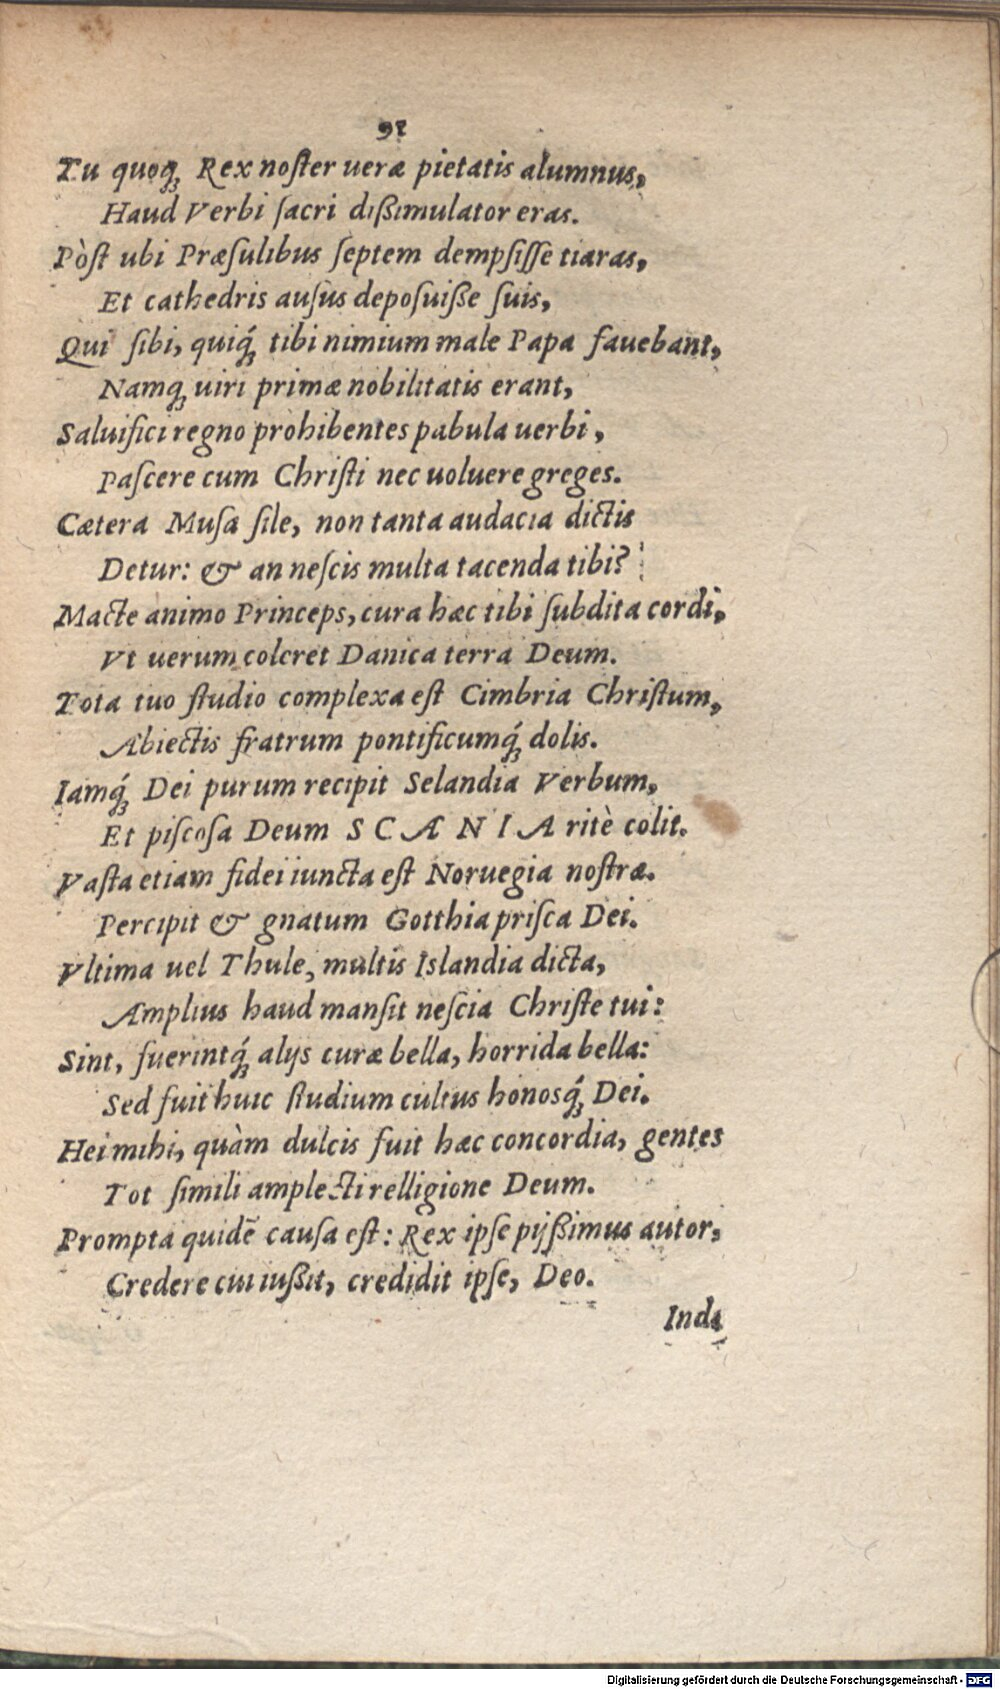 91
Tu quoq; Rex noſter ueræ pietatis alumnus,
Haud Verbi ſacri dißimulator eras.
Pòſt ubi Præſulibus ſeptem dempſiſſe tiaras,
Et cathedris auſus depoſuiße ſuis,
Qui ſibi, quiq́; tibi nimium male Papa fauebant,
Namq; uiri primæ nobilitatis erant,
Saluifici regno prohibentes pabula uerbi,
Paſcere cum Chriſti nec uoluere greges.
Cætera Muſa ſile, non tanta audacia dictis
Detur: & an neſcis multa tacenda tibi?
Macte animo Princeps, cura hæc tibi ſubdita cordi,
Vt uerum coleret Danica terra Deum.
Tota tuo ſtudio complexa eſt Cimbria Chriſtum,
Abiectis fratrum pontificumq́; dolis.
Iamq́; Dei purum recipit Selandia Verbum,
Et piſcoſa Deum SCANIA ritè colit.
Vaſta etiam fidei iuncta eſt Noruegia noſtræ.
Percipit & gnatum Gotthia priſca Dei.
Vltima uel Thule, multis Islandia dicta,
Amplius haud manſit neſcia Chriſte tui:
Sint, fuerintq́; alijs curæ bella, horrida bella:
Sed fuit huic ſtudium cultus honosq́; Dei.
Hei mihi, quàm dulcis fuit hæc concordia, gentes
Tot ſimili amplecti relligione Deum.
Prompta quidẽ cauſa eſt: Rex ipſe pijßimus autor,
Credere cui iußit, credidit ipſe, Deo.
Inde
Digitalisierung gefördert durch die Deutsche Forschungsgemeinschaft - DFG